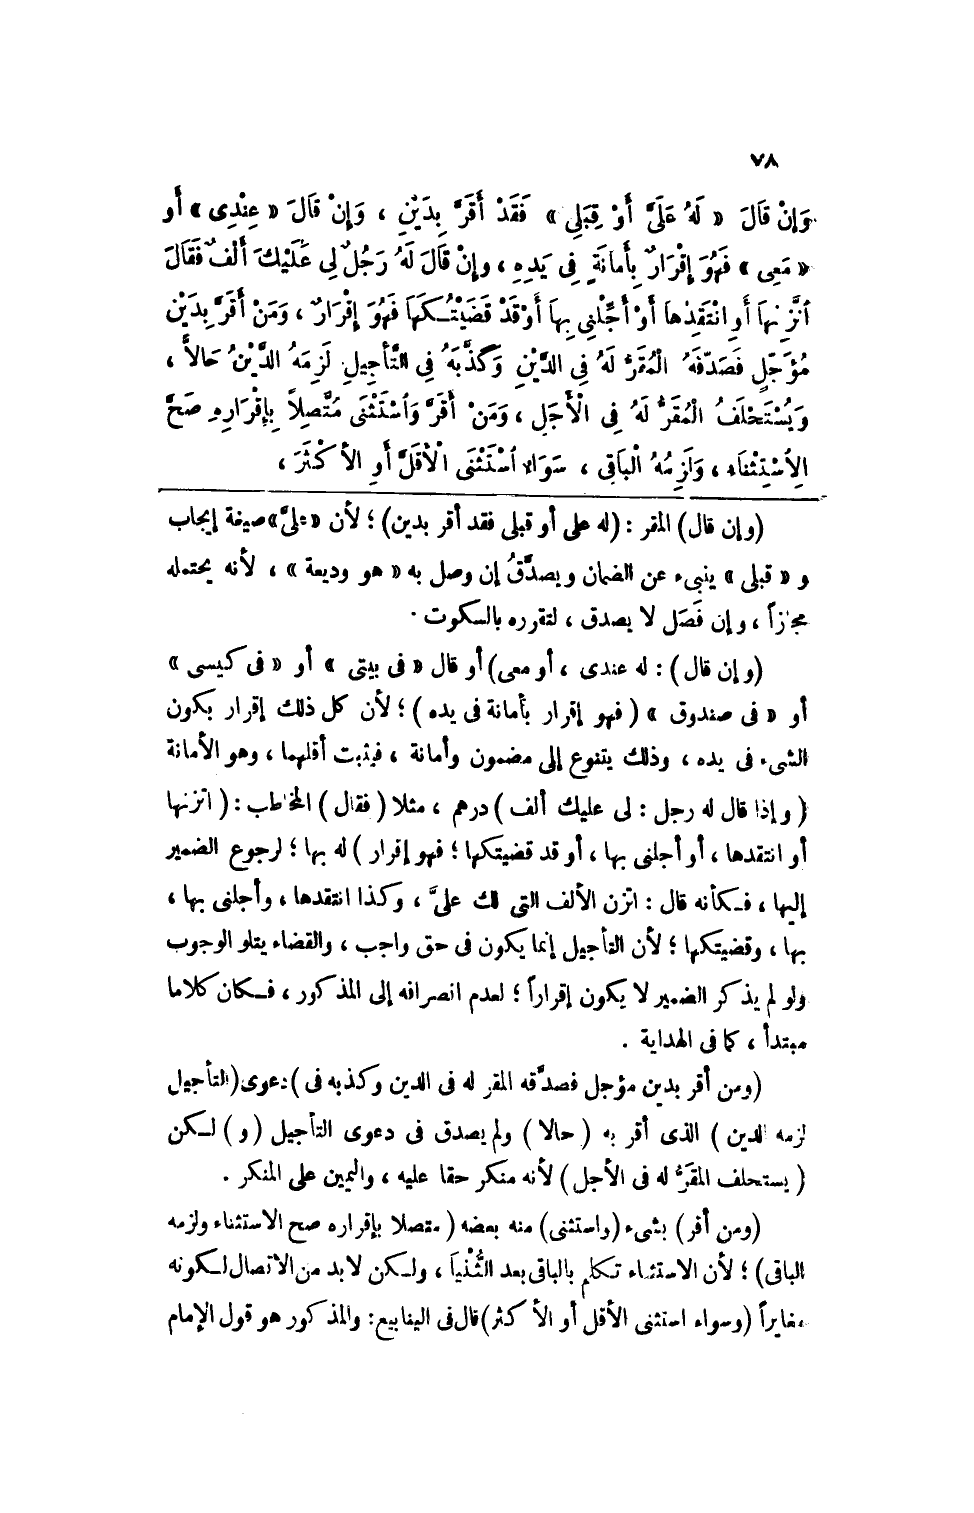 ٧٨
وَإِنْ قَالَ « لَهُ عَلَىَّ أَوْ قِبَلِى » فَقَدْ أَقَرَّ بِدَيْنٍ ، وَإِنْ قَالَ « عِنْدِى » أَو
« مَعِى » فَهُوَ إِقْرَارٌ بِأَمانَةٍ فِى يَدِهِ ، وإِنْ قَالَ لَهُ رَجُلٌ لِى عَلَيْكَ أَلْفٌ فَقَالَ
اتَّزِنْهَا أَوِ انْتَقِدْها أَوْ أَجِّلْنِى بِهَا أَوْ قَدْ قَضَيْتُـكَهَا فَهُوَ إِقْرَارٌ ، وَمَنْ أَقَرَّ بِدَيْنٍ
مُؤَجَّلٍ فَصَدَّقَهُ الْمُقَرُّ لَهُ فِى الدَّيْنِ وَكَذَّبَهُ فِى التَّأْجِيلِ لَزِمَهُ الدَّيْنُ حَالاًّ ،
وَيُسْتَحْلَفُ الْمُقَرُّ لَهُ فِى الْأَجَلِ ، وَمَنْ أَقَرَّ وَاسْتَثْنَى مُتَّصِلاً بِإِقْرَارِهِ صَحَّ
الِاسْتِثْنَاء ، وَلَزِمُهُ الْبَاقِى ، سَوَاء اسْتَثْنَى الْأَقَلَّ أَوِ الأَكْثَرَ ،
(وإن قال) المقر : (له على أو قبلى فقد أقر بدين) ؛ لأن « علىَّ» صيغة إيجاب
و « قبلى » ينبىء عن الضمان ويصدَّقُ إن وصل به « هو وديعة » ، لأنه يحتمله
مجازاً ، وإن فَصَل لا يصدق ، لتقرره بالسكوت .
(وإن قال ) : له عندى ، أو معى) أو قال « فى بيتى » أو « فى كيسى »
أو « فى صندوق » ( فهو إقرار بأمانة فى يده ) ؛ لأن كل ذلك إقرار بكون
الشىء فى يده ، وذلك يتنوع إلى مضمون وأمانة ، فيثبت أقلهما ، وهو الأمانة
( وإذا قال له رجل : لى عليك ألف ) درهم ، مثلا ( فقال ) المخاطب : ( اتزنها
أو انتقدها ، أو أجلنى بها ، أو قد قضيتكها ؛ فهو إقرار ) له بها ؛ لرجوع الضمير
إليها ، فـكأنه قال : اتزن الألف التى لك علىَّ ، وكذا انتقدها ، وأجلنى بها ،
بها ، وقضيتكها ؛ لأن التأجيل إنما يكون فى حق واجب ، والقضاء يتلو الوجوب
ولو لم يذكر الضمير لا يكون إقراراً ؛ لعدم انصرافه إلى المذكور ، فـكان كلاما
مبتدأ ، كما فى الهداية .
(ومن أقر بدين مؤجل فصدَّقه المقر له فى الدين وكذبه فى ) دعوى (التأجيل
لزمه الدين ) الذى أقر به ( حالا ) ولم يصدق فى دعوى التأجيل ( و ) لـكن
( يستحلف المقَرُّ له فى الأجل ) لأنه منكر حقا عليه ، واليمين على المنكر .
(ومن أقر ) بشىء (واستثنى) منه بعضه ( متصلا بإقراره صح الاستثناء ولزمه
الباقى) ؛ لأن الاستثناء تـكلم بالباقى بعد الثُّنْيَا ، ولـكن لابد من الاتصال لـكونه
مغايراً (وسواء استثنى الأقل أو الأكثر) قال فى الينابيع: والمذكور هو قول الإمام